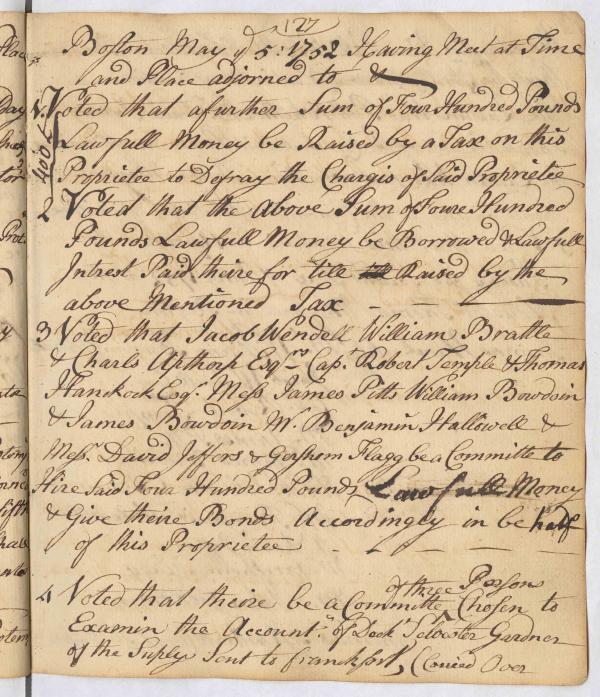 127
Boston May ye 5: 1752 Having Meet at Time
and Place adjorned to &
1. Voted that a further Sum of Four Hundred Pounds
400 £
Lawfull Money be Raised by a Tax on this
Proprietee to Defray the Chargis of Said Proprietee
2 Voted that the above Sum of Foure Hundred
Pounds Lawfull Money be Borrowed & Lawfull
Intrest Paid theire for till Raised by the
above Mentioned Tax
3 Voted that Jacob Wendell William Brattle
& Charls Apthorp Esqrs Capt Robert Temple & Thomas
Hanckock Esqr Mess James Pitts William Bowdoin
& James Bowdoin Mr. Benjamin Hallowell &
Messr David Jeffers & Gershom Flagg be a Committe to
Hire Said Four Hundred Pounds Lawfull Money
& Give theire Bonds Accordingly in be half
of this Proprietee
of three Person
4 Voted that theire be a Committe Chosen to
Examin the Accounts of Deck Silvester Gardner
of the Suply Sent to Frankfort, (Caried Over